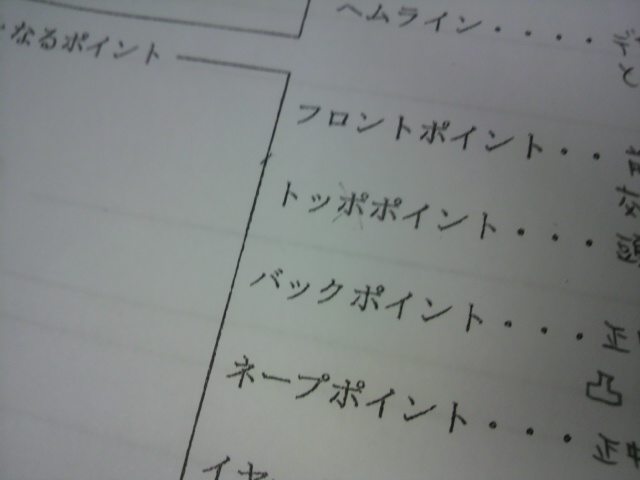 ヘムライン・・・・
なるポイント
フロントポイント・・
トッポポイント・・・
バックポイント・・・
凸
ネープポイント・・・
イヤ